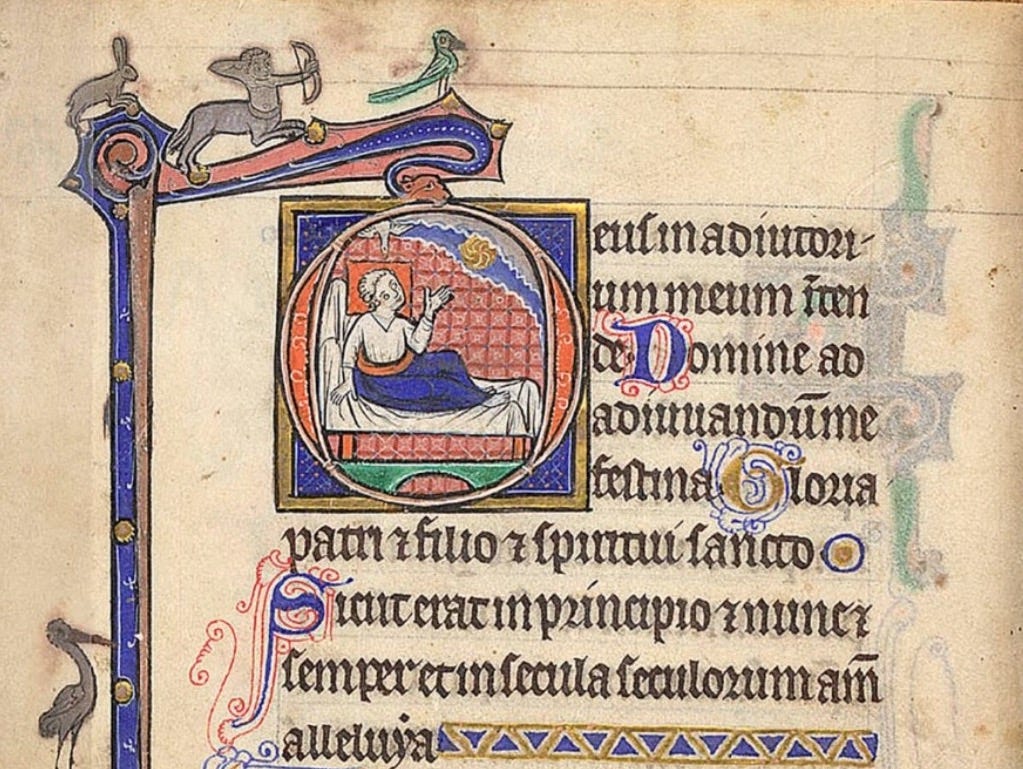 Deus in adiutori-
um meum īten
de Domine ad
adiuuandūme
festina Gloria
patri ⁊ filio ⁊ spiritui sancto
Sicut erat in principio ⁊ nunc ⁊
semper et in secula seculorum am̄
alleluya